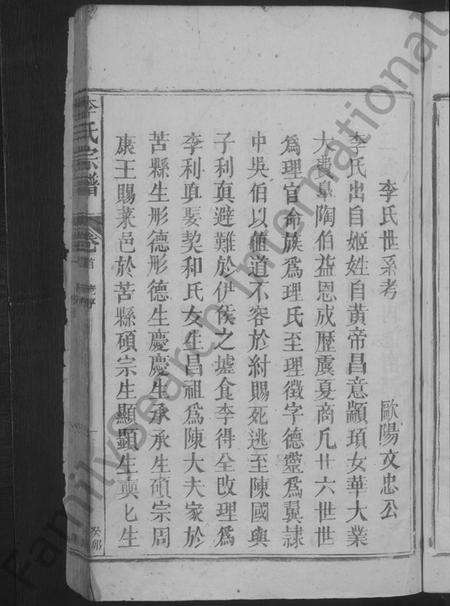 李氏世系考
歐陽文忠公
李氏出自姬姓自黃帝昌意顓頊女華大業
大費皐陶伯益恩成歷虞夏商凡廿六世世
爲理官命族爲理氏至理徵字德靈爲翼隷
中吳伯以直道不容於紂賜死逃至陳國與
子利貞避難於伊侯之墟食李得全改理爲
李利貞娶契和氏女生昌祖爲陳大夫家於
苦縣生形德形德生慶慶生承承生碩宗周
康王賜菜邑於苦縣碩宗生顯顯生奭奭生
李氏宗譜
卷首
FamilySearch International